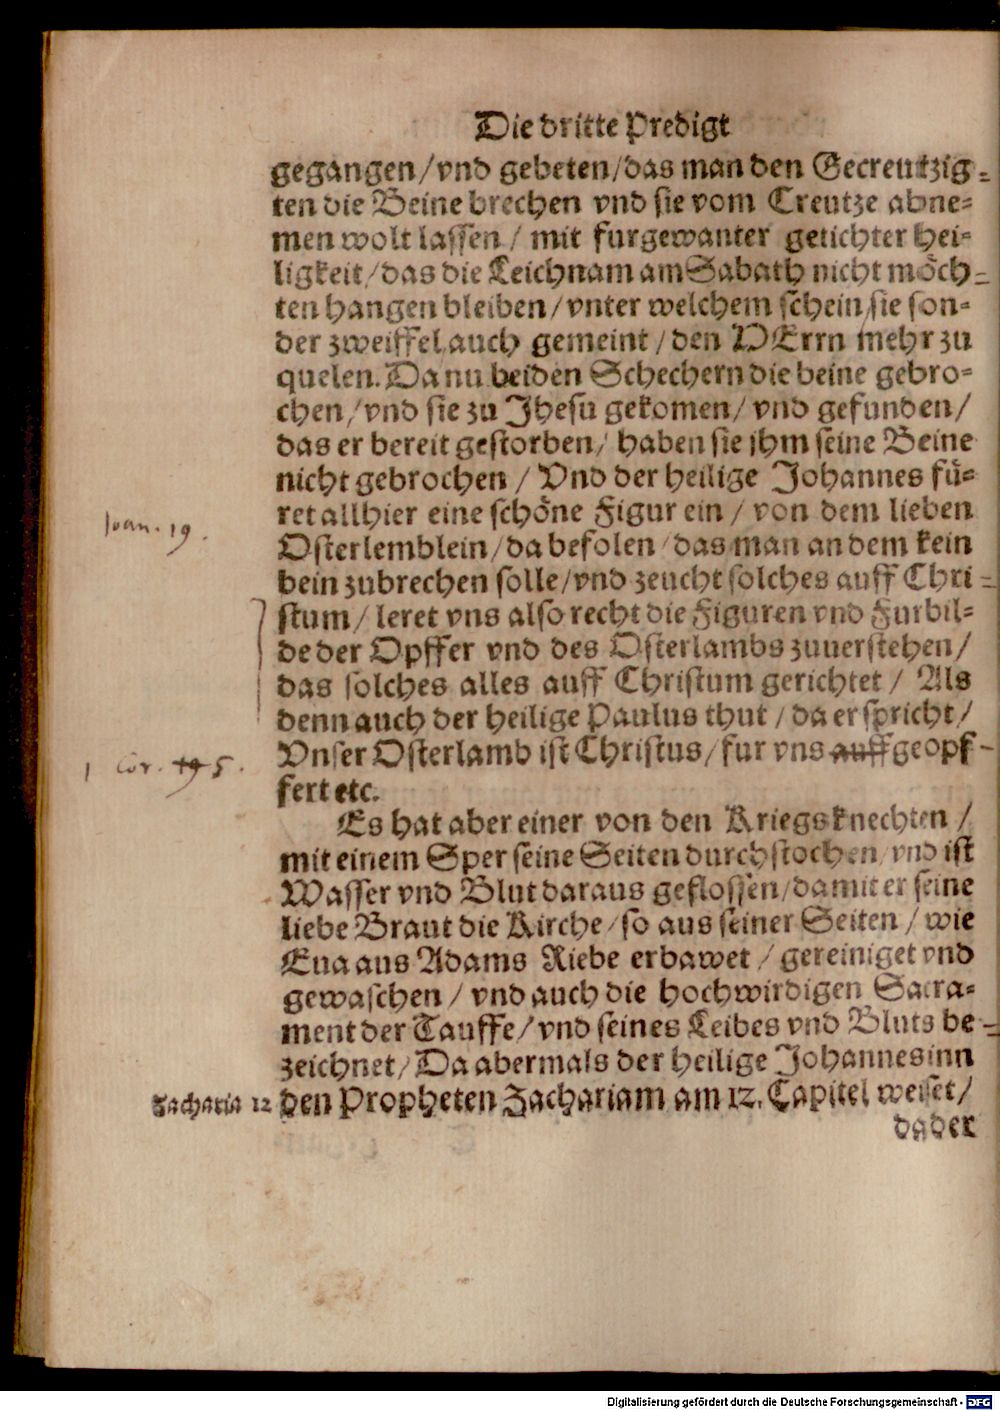 Die dritte Predigt
gegangen/vnd gebeten/das man den Gecreutzig-
ten die Beine brechen vnd sie vom Creutze abne-
men wolt lassen / mit furgewanter getichter Hei-
ligkeit/das die Leichnam am Sabath nicht möch-
ten hangen bleiben/vnter welchem schein/sie son-
der zweiffel auch gemeint/den HErrn mehr zu
quelen. Da nu beiden Schechern die beine gebro-
chen/vnd sie zu Jhesu gekomen/vnd gefunden/
das er bereit gestorben/ haben sie jhm seine Beine
nicht gebrochen / Vnd der heilige Johannes fü-
Joan. 19.
ret allhier eine schöne Figur ein / von dem lieben
Osterlemblein/da befolen/das man an dem kein
bein zubrechen solle/vnd zeucht solches auff Chri-
stum/ leret vns also recht die Figuren vnd Furbil-
de der Opffer vnd des Osterlambs zuuerstehen/
das solches alles auff Christum gerichtet / Als
denn auch der heilige Paulus thut/da er spricht/
1 Cor. 5.
Vnser Osterlamb ist Christus/fur vns auffgeopf-
fert etc.
Es hat aber einer von den Kriegsknechten /
mit einem Sper seine Seiten durchstochen/vnd ist
Wasser vnd Blut daraus geflossen/damit er seine
liebe Braut die Kirche/so aus seiner Seiten / wie
Eua aus Adams Riebe erbawet / gereiniget vnd
gewaschen / vnd auch die hochwirdigen Sacra-
ment der Tauffe/vnd seines Leibes vnd Bluts be-
zeichnet/Da abermals der heilige Johannes inn
Zacharia 12
den Propheten Zachariam am 12. Capitel weiset/
da der
Digitalisierung gefördert durch die Deutsche Forschungsgemeinschaft - DFG